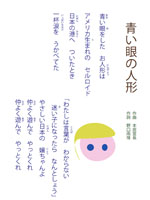 青い眼の人形
作曲 本居長世
作詞 野口雨情
青い眼をした お人形は
アメリカ生まれの セルロイド
日本の港へ ついたとき
一杯涙を うかべてた
「わたしは言葉が わからない
迷い子になったら なんとしょう」
やさしい日本の 嬢ちゃんよ
仲よく遊んで やっとくれ
仲よく遊んで やっとくれ